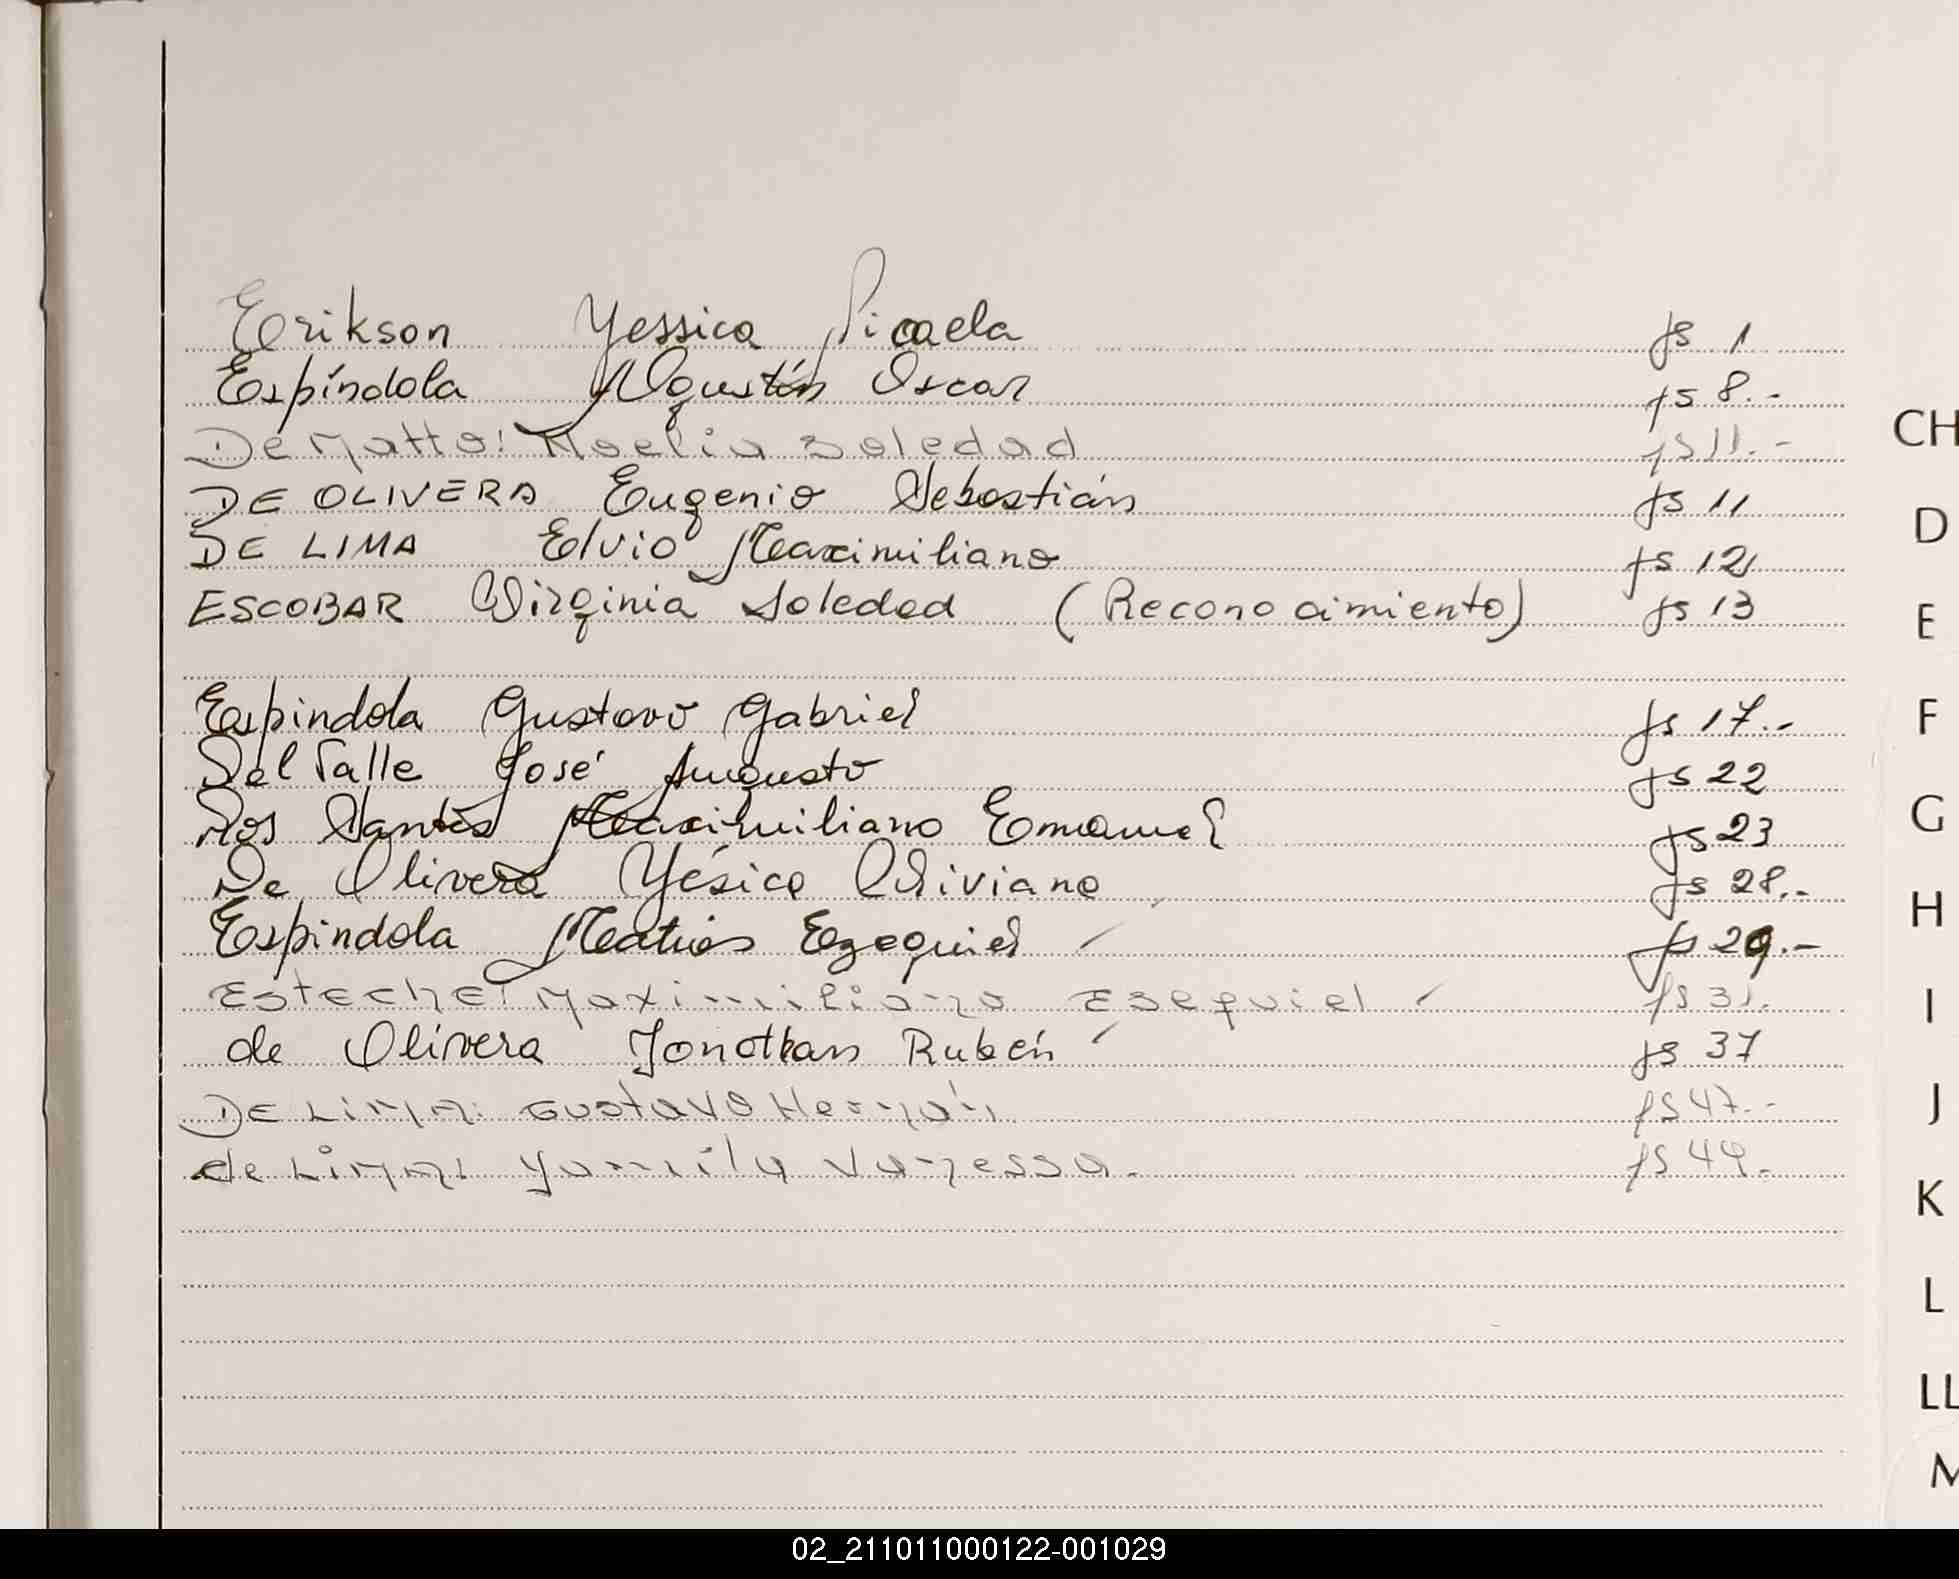 Erikson Yessica Micaela fs 1
Espíndola Agustín Oscar fs 8.-
De Matto: Noelia Soledad fs 11.-
DE OLIVERA Eugenio Sebastián fs 11
DE LIMA Elvio Maximiliano fs 12
ESCOBAR Virginia Soledad (Reconocimiento) fs 13
Espindola Gustavo Gabriel fs 17.-
Del Valle José Augusto fs 22
Dos Santos Maximiliano Emanuel fs 23
De Olivera Yésica Viviana fs 28.-
Espindola Matias Ezequiel fs 29.-
Esteche: Maximiliano Esequiel fs
de Olivera Jonathan Rubén fs 37
DE Lima: Gustavo Hernán fs 47.-
de Lima: Yamila Vanessa. fs 49.
CH
D
E
F
G
H
I
J
K
L
LL
M
02_211011000122-001029